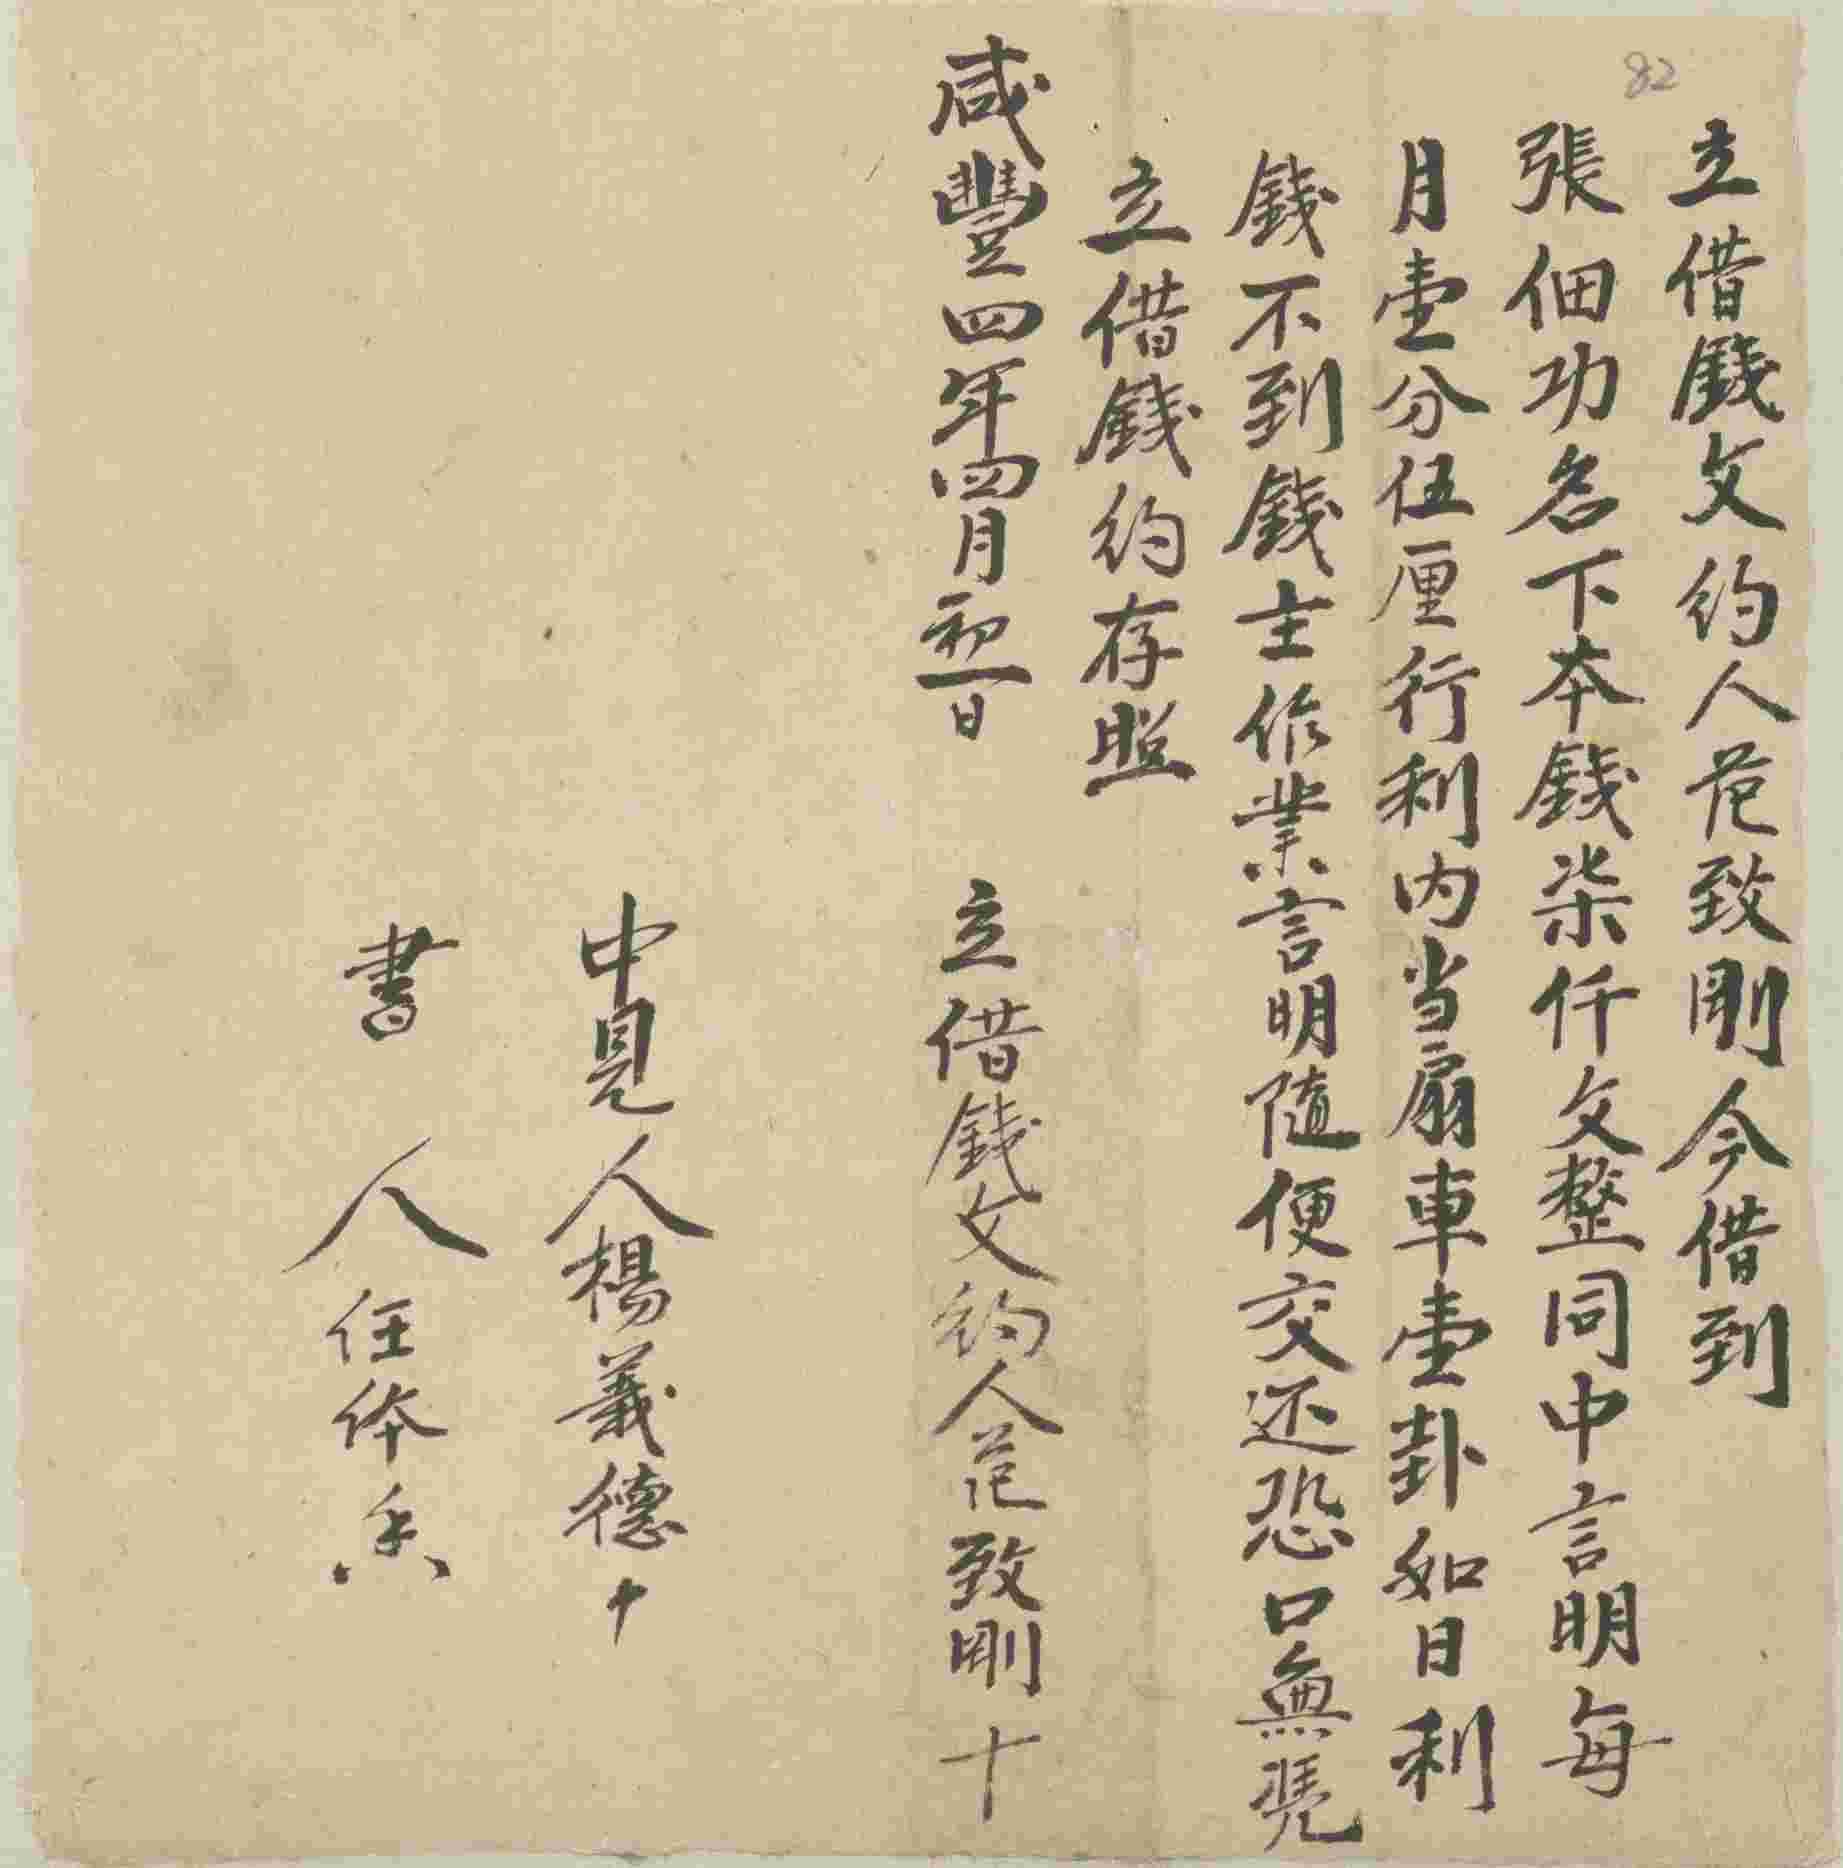 82
立借錢文約人范致剛今借到
張佃功名下本錢柒仟文整同中言明每
月壹分伍厘行利内当扇車壹卦如日利
錢不到錢主作業言明隨便交还恐口無凭
立借錢約存照
咸豐四年四月初一日 立借錢文約人范致剛十
中見人楊義德十
書人任体